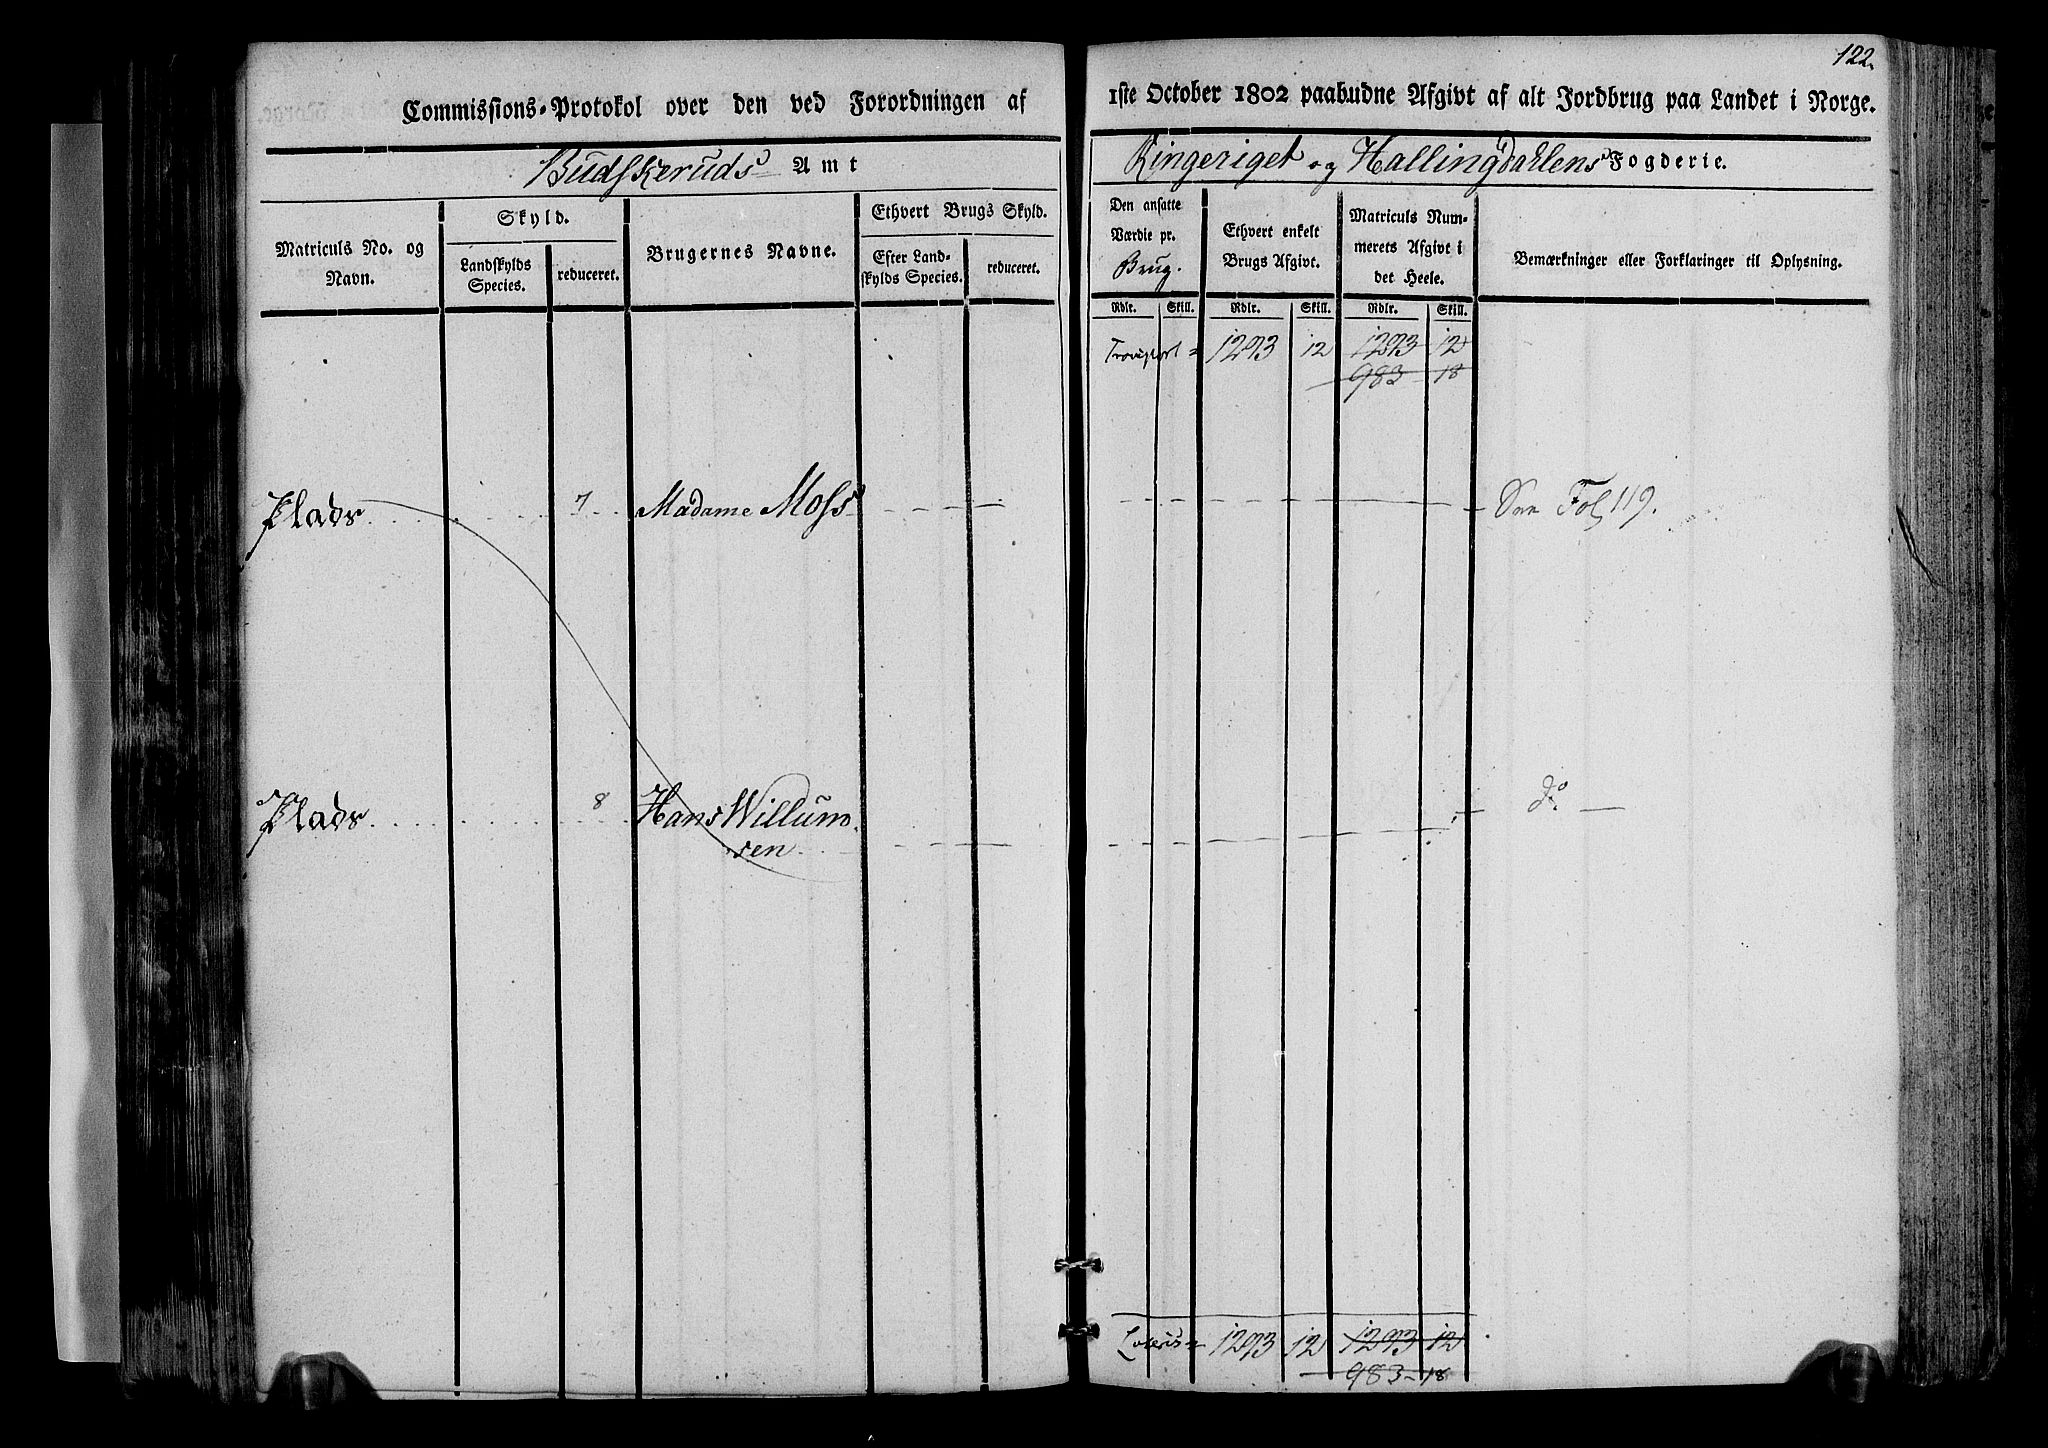 122.
Commissions-Protokol over den ved Forordningen af 1ste October 1802 paabudne Afgivt af alt Jordbrug paa Landet i Norge.
Budskeruds Amt
Ringeriget og Hallingdahlens Fogderie.
Matriculs No. og Navn.
Skyld.
Landskylds Species.
reduceret.
Brugernes Navne.
Ethvert Brugs Skyld.
Efter Landskylds Species.
reduceret.
Den ansatte Værdie pr. Brug.
Ethvert enkelt Brugs Afgivt.
Matriculs Nummerets Afgivt i det Heele.
Bemærkninger eller Forklaringer til Oplysning.
Rdlr. Skill. Rdlr. Skill. Rdlr. Skill.
Transport 1293 12 1293 12
983 18
Plads 7 Madame Moss See Fol 119.
Plads 8 Hans Willumsen do
Lateris 1293 12 1293 12
983 18